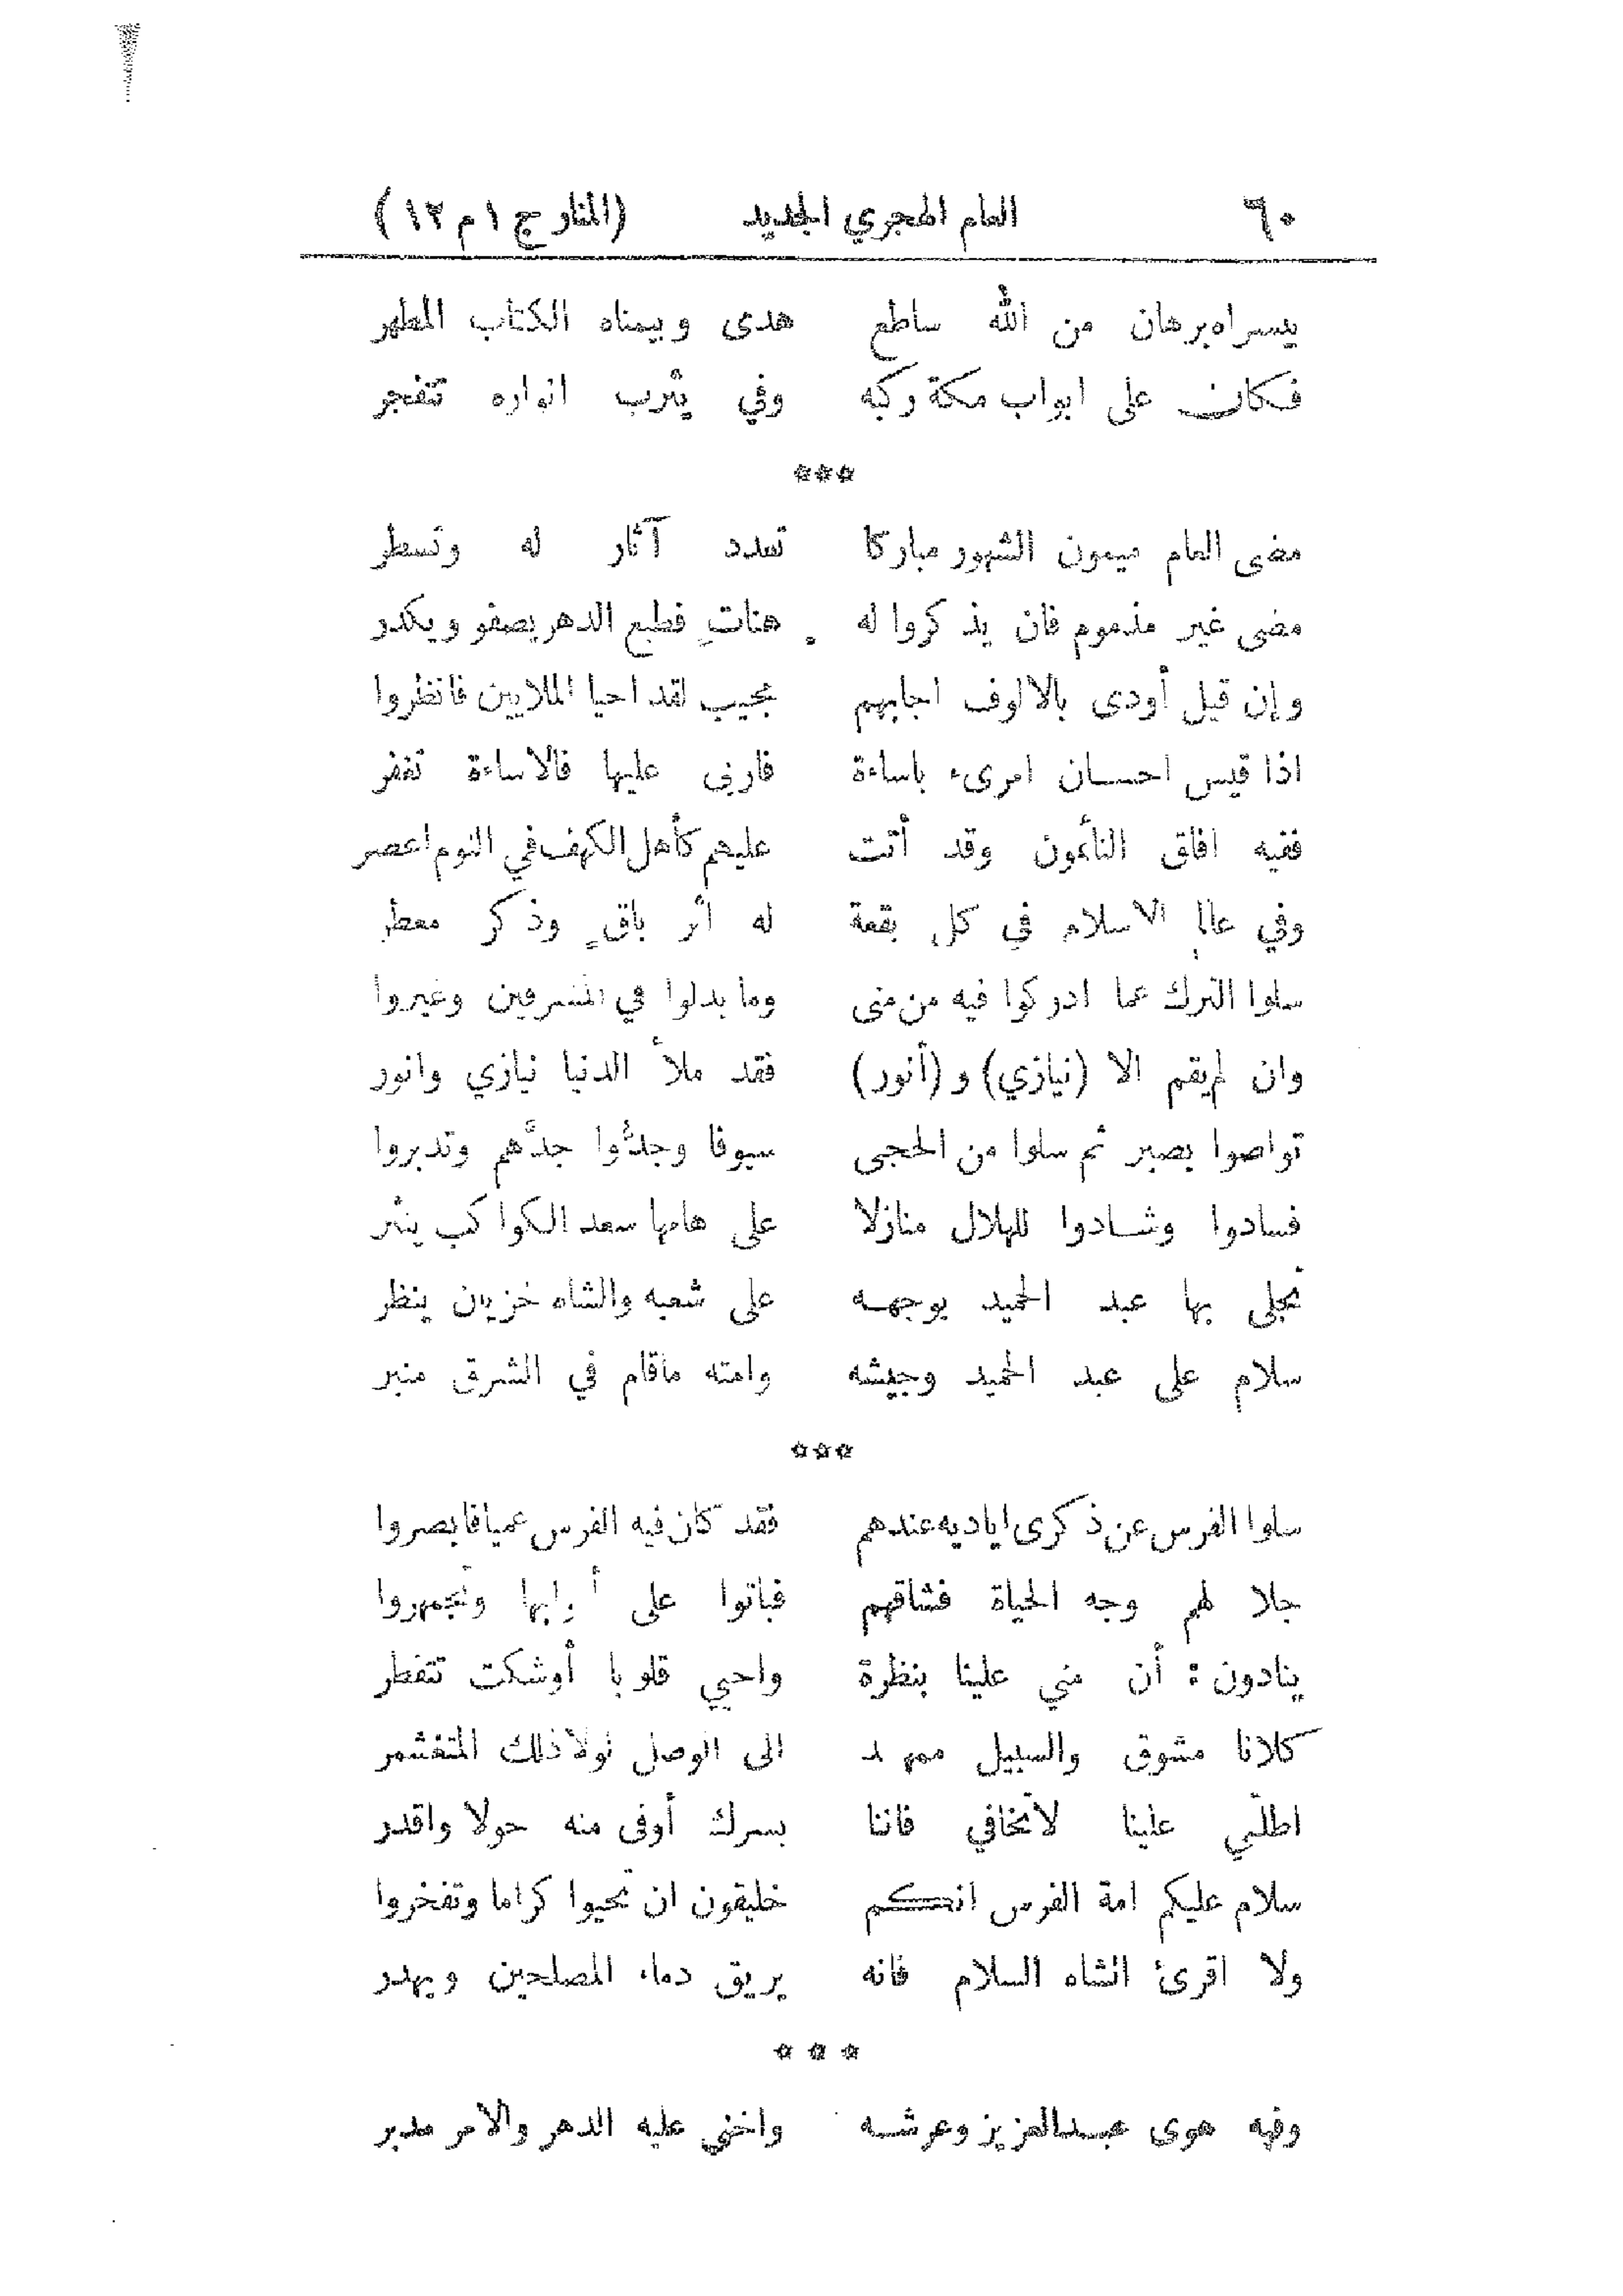 ٦٠ العام الهجري الجديد (المنار ج ١ م ١٢)
بيسراه برهان من الله ساطع هدى وبيمناه الكتاب المطهر
فكان على ابواب مكة ركبه وفي يثرب انواره تتفجر
***
مضى العام ميمون الشهور مباركا تعدد آثار له وتسطر
مضى غير مذموم فان يذكروا له هناتٍ فطبع الدهر يصفو ويكدر
وإن قيل أودى بالالوف اجابهم مجيب لقد احيا الملايين فانظروا
اذا قيس احسان امرىء باساءة فاربى عليها فالاساءة تغفر
ففيه افاق النائمون وقد أتت عليهم كأهل الكهف في النوم اعصر
وفي عالم الاسلام في كل بقعة له اثر باقٍ وذكر معطر
سلوا الترك عما ادركوا فيه من منى وما بدلوا في المشرقين وغيروا
وان لم يقم الا (نيازي) و (أنور) فقد ملأ الدنيا نيازي وانور
تواصوا بصبر ثم سلوا من الحجى سيوفا وجدُّوا جدَّهم وتدبروا
فسادوا وشادوا للهلال منازلا على هامها سعد الكواكب ينثر
تجلى بها عبد الحميد بوجهه على شعبه والشاه خزيان ينظر
سلام على عبد الحميد وجيشه وامته ماقام في الشرق منبر
***
سلوا الفرس عن ذكرى اياديه عندهم فقد كان فيه الفرس عميا فابصروا
جلا لهم وجه الحياة فشاقهم فباتوا على أبوابها وتجمهروا
ينادون : أن مني علينا بنظرة واحيي قلوبا أوشكت تتفطر
كلانا مشوق والسبيل ممهد الى الوصل لولا ذلك المتغشمر
اطلّي علينا لا تخافي فاننا بسرك أوفى منه حولا واقدر
سلام عليكم امة الفرس انكم خليقون ان تحيوا كراما وتفخروا
ولا اقرئ الشاه السلام فانه يريق دماء المصلحين ويهدر
* * *
وفيه هوى عبد العزيز وعرشه واخنى عليه الدهر والامر مدبر